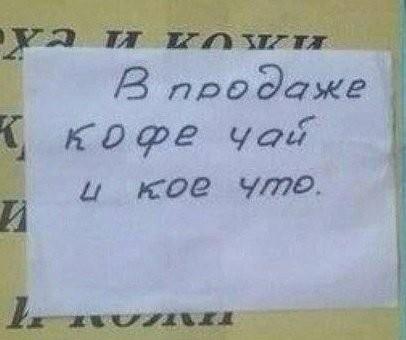 еха и кожи
В продаже
кофе чай
и кое что.
и кожи